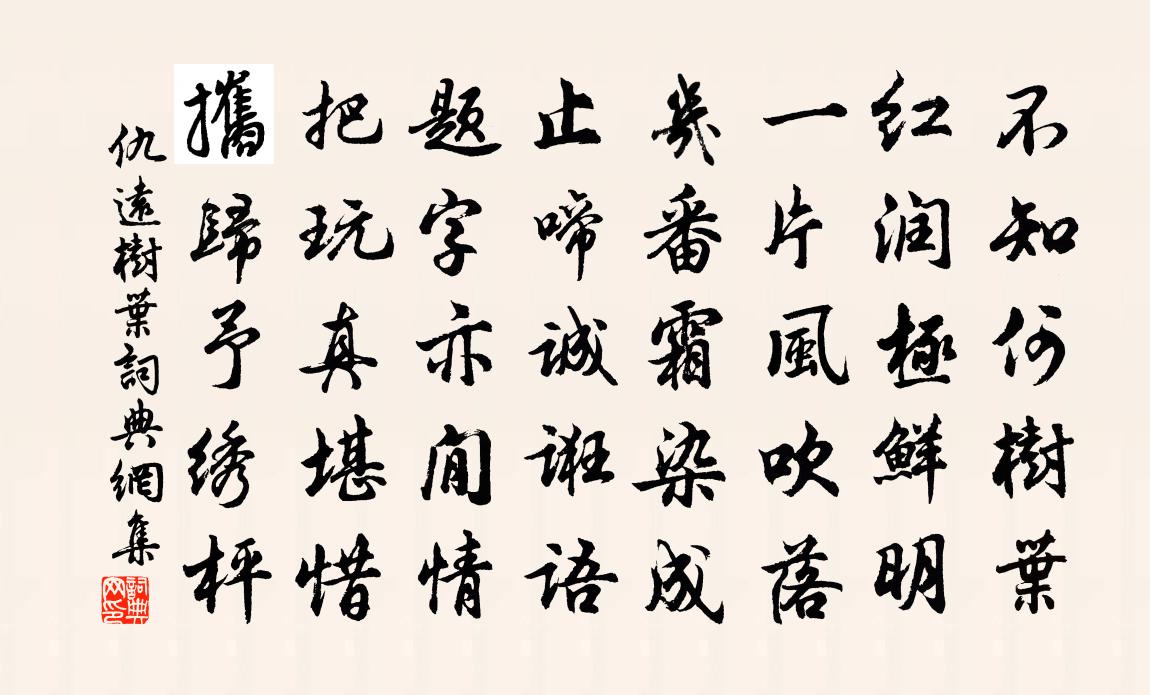 不知何樹葉
红润極鮮明
一片風吹落
幾番霜染成
止啼誠誑語
题字亦閒情
把玩真堪惜
攜歸予绣枰
仇遠樹葉詞典網集
詞典网印